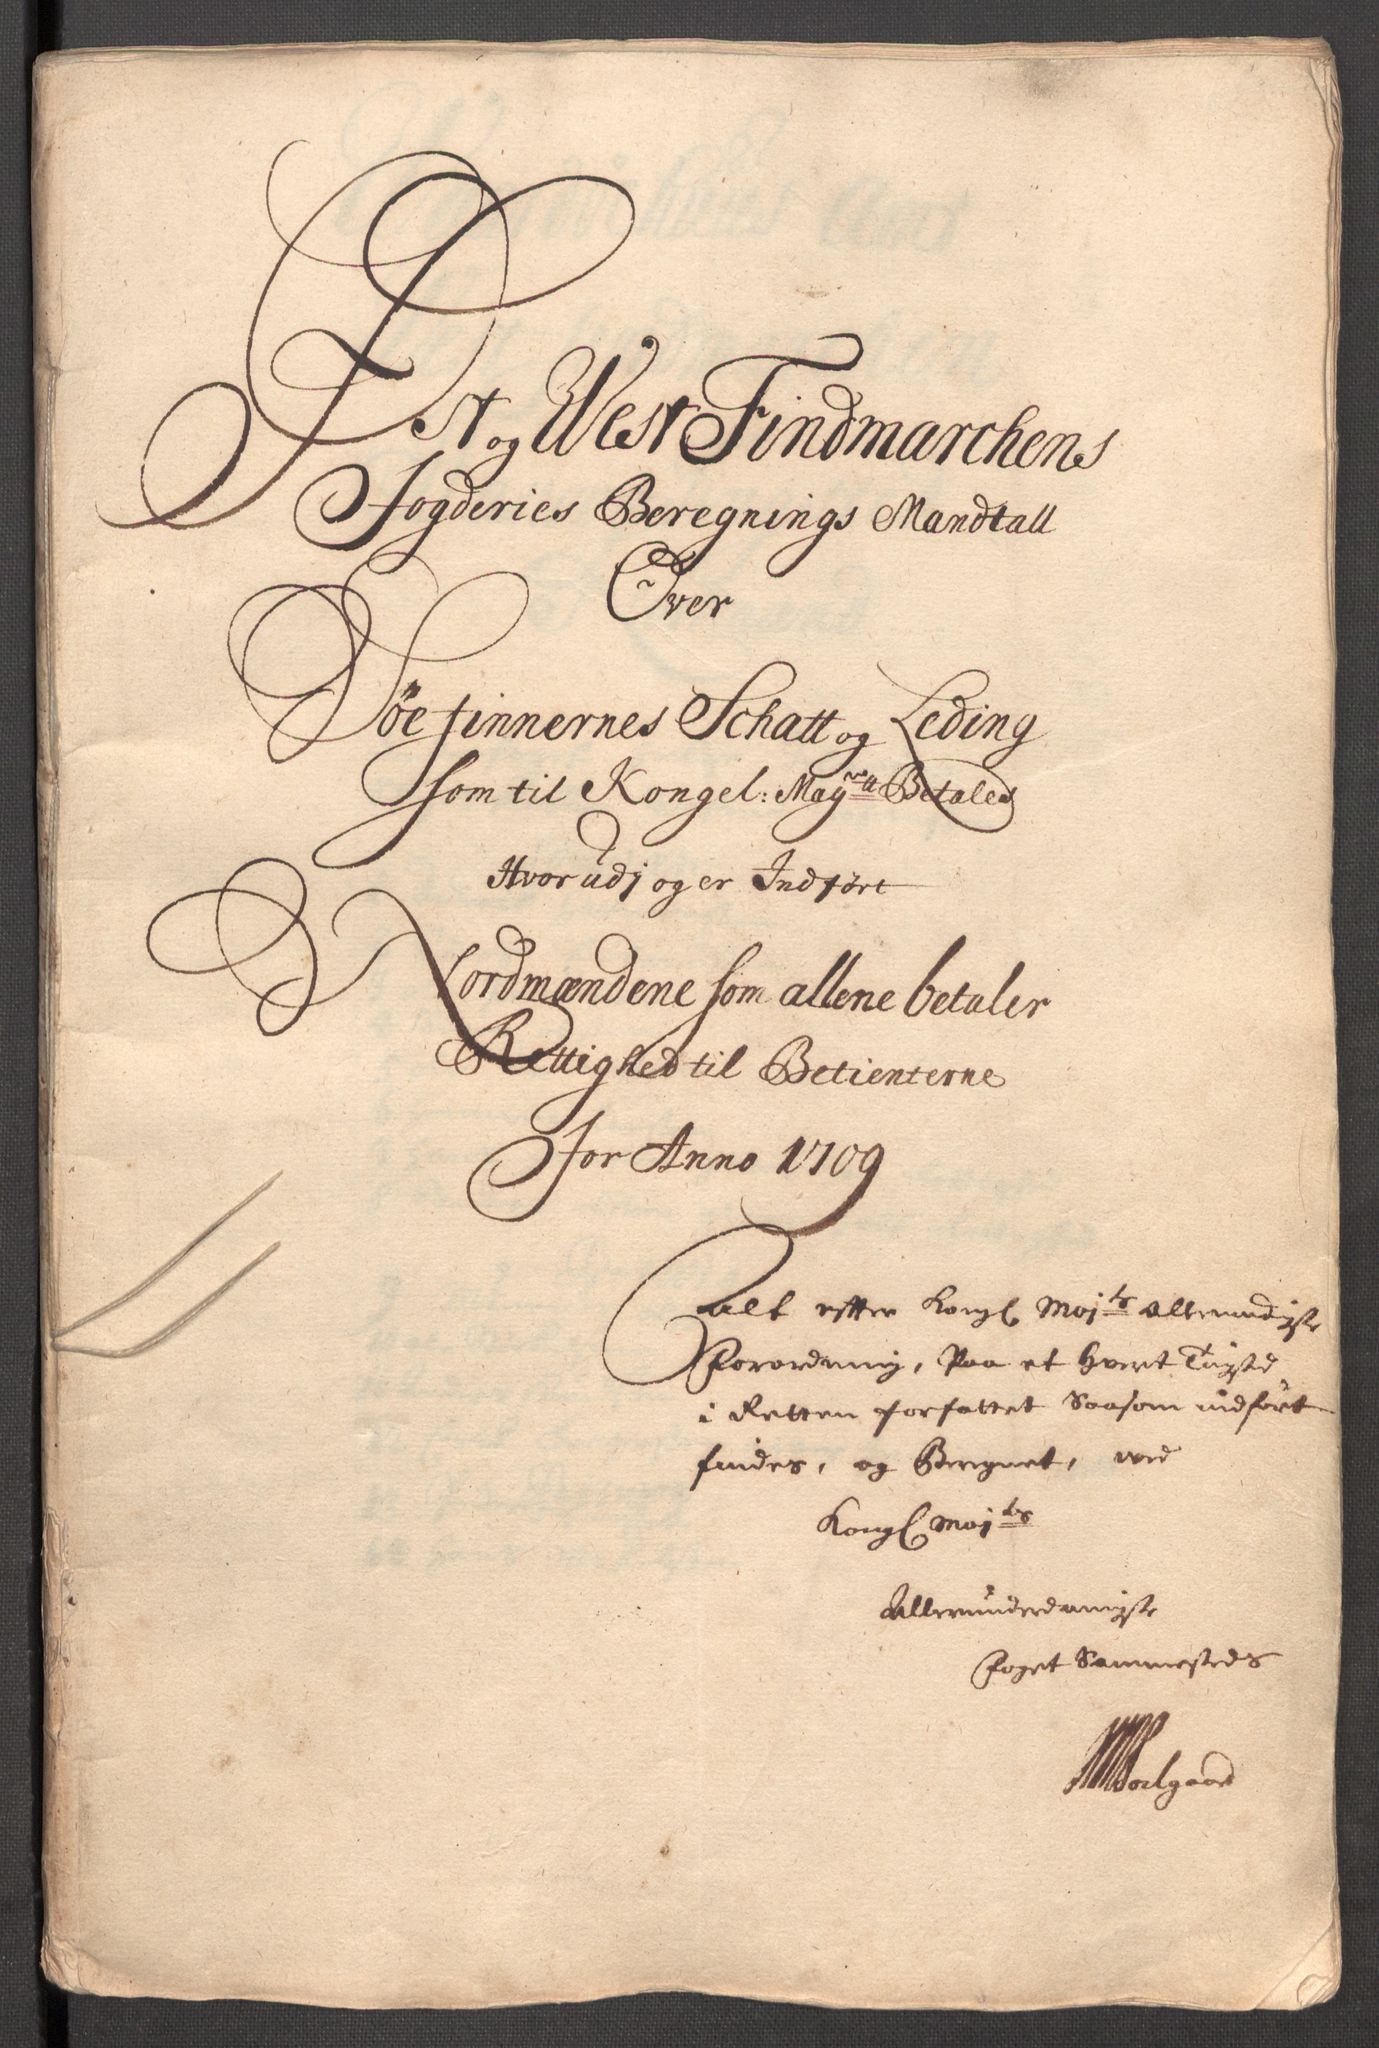 Øst og West Findmarchens
Fogderies Beregnings Mandtall
Over
Søefinnernes Schatt og Leding
som til Kongel: Mayst Betales
Hvorudj og er Indført
Nordmændene som allene betaler
Rettighed til Betienterne
For Anno 1709
alt efter Kongl Majts Allernaadigste
Forordning, Paa et hvert Tingsted
i Retten forfattet Saasom indført
findes, og Beregnet, ved
Kongl Majts
Allerunderdanigste
Foget Sammesteds
Soelgaard